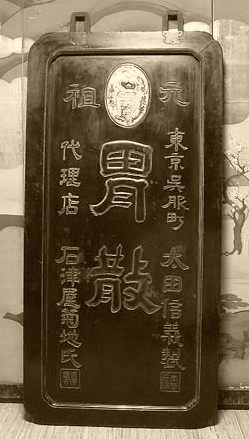 元祖
東京呉服町
太田信義製
胃散
代理店
石津屋菊地氏